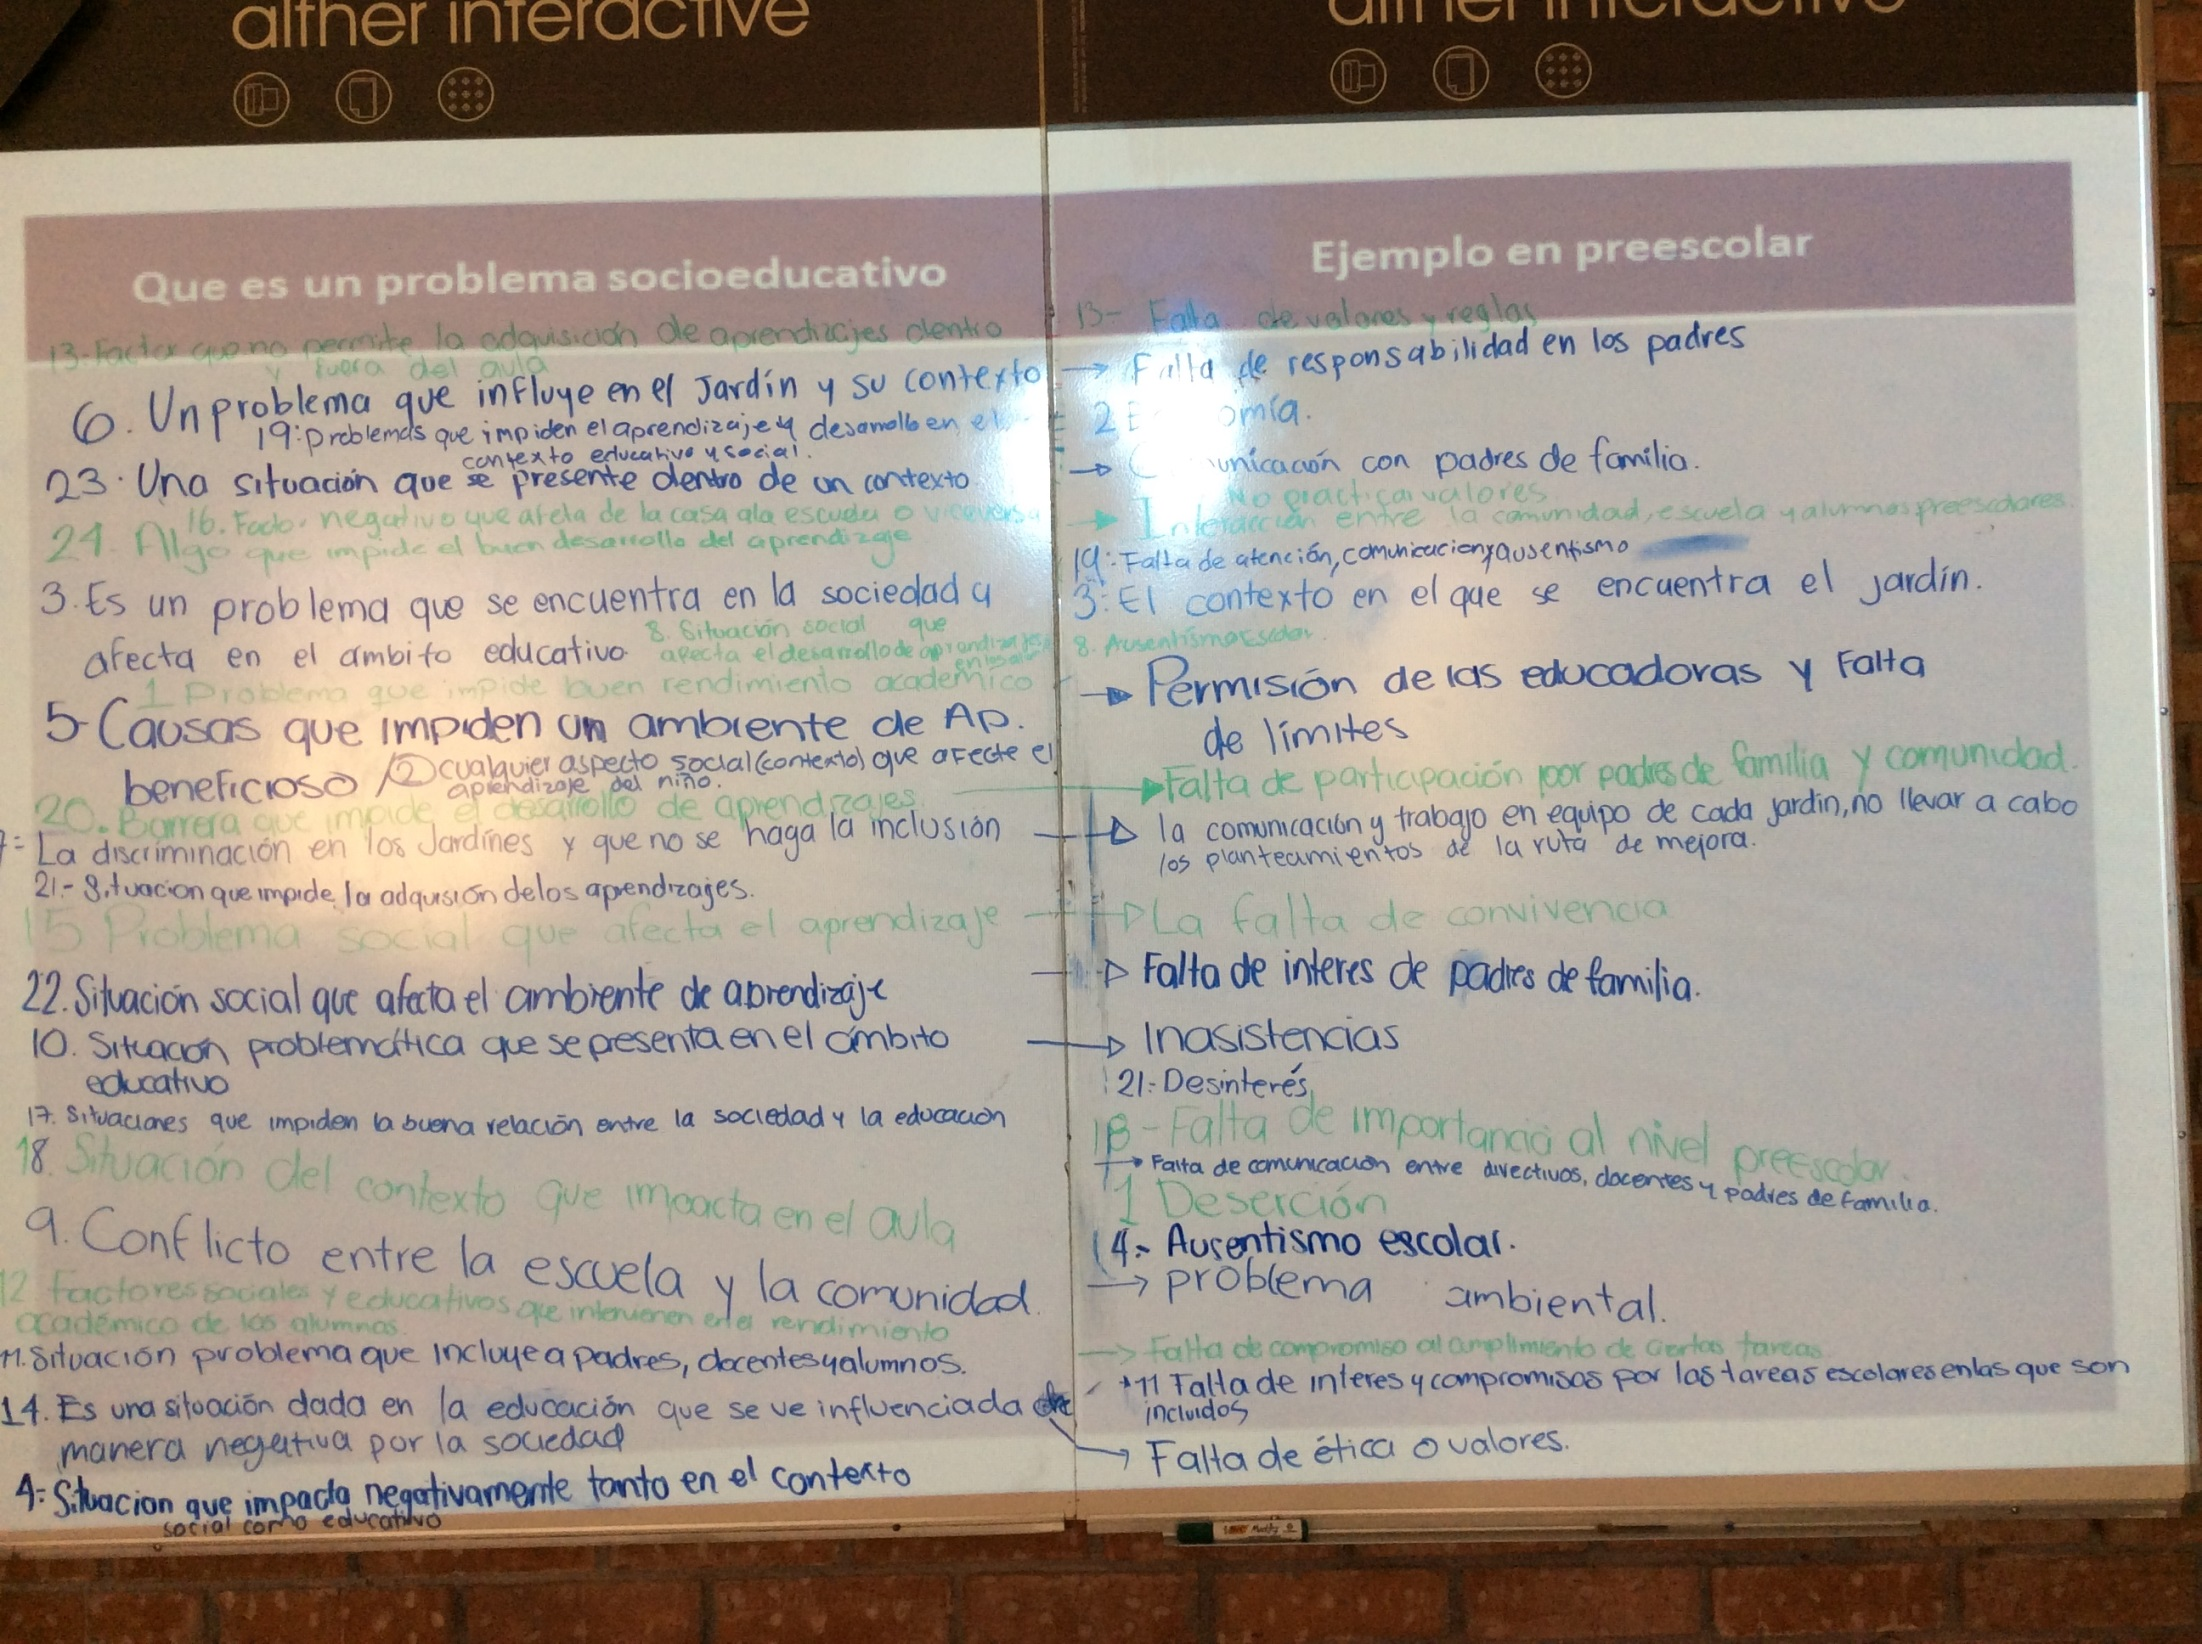 alther interactive
alther interactive
Que es un problema socioeducativo
13-Factor que no permite la adquisición de aprendizajes dentro
y fuera del aula
6. Un problema que influye en el Jardín y su contexto
19: Problemas que impiden el aprendizaje y desarrollo en el
contexto educativo y social.
23. Una situación que se presente dentro de un contexto
16. Factor negativo que afecta de la casa a la escuela o viceversa
24. Algo que impide el buen desarrollo del aprendizaje
3. Es un problema que se encuentra en la sociedad y
afecta en el ambito educativo
8. Situación social que
afecta el desarrollo de aprendizajes
en
1 Problema que impide buen rendimiento academico
5- Causas que impiden un ambiente de Ap.
beneficioso
2 cualquier aspecto social (contexto) que afecte el
aprendizaje del niño.
20. Barrera que impide el desarrollo de aprendizajes
7= La discriminación en los Jardínes y que no se haga la inclusión
21.- Situacion que impide la adquisión de los aprendizajes.
15 Problema social que afecta el aprendizaje
22. Situación social que afecta el ambiente de aprendizaje
10. Situación problemática que se presenta en el ámbito
educativo
17. Situaciones que impiden la buena relación entre la sociedad y la educación
18. Situación del contexto que impacta en el aula
9. Conflicto entre la escuela y la comunidad.
12 Factores sociales y educativos que intervienen en el rendimiento
académico de los alumnos.
11. Situación problema que incluye a padres, docentes y alumnos.
14. Es una situación dada en la educación que se ve influenciada de
manera negativa por la sociedad
4= Situacion que impacta negativamente tanto en el contexto
social como educativo
Ejemplo en preescolar
13- Falta de valores y reglas
→ Falta de responsabilidad en los padres
2
→ con padres de familia.
No practicar valores
→ Interacción entre la comunidad, escuela y alumnos preescolares.
19: Falta de atención, comunicacion y ausentismo
3: El contexto en el que se encuentra el jardín.
8. Ausentismo Escolar.
→ Permisión de las educadoras y Falta
de límites
→ Falta de participación por padres de familia y comunidad.
→ la comunicación y trabajo en equipo de cada jardin, no llevar a cabo
los planteamientos de la ruta de mejora.
→ La falta de convivencia
→ Falta de interes de padres de familia.
→ Inasistencias
21.- Desinterés
18- Falta de importancia al nivel preescolar.
→ Falta de comunicación entre directivos, docentes y padres de familia.
1 Deserción
4.- Ausentismo escolar.
→ problema ambiental.
→ Falta de compromiso al cumplimiento de ciertas tareas
11 Falta de interes y compromisos por las tareas escolares en las que son
incluidos
→ Falta de ética o valores.